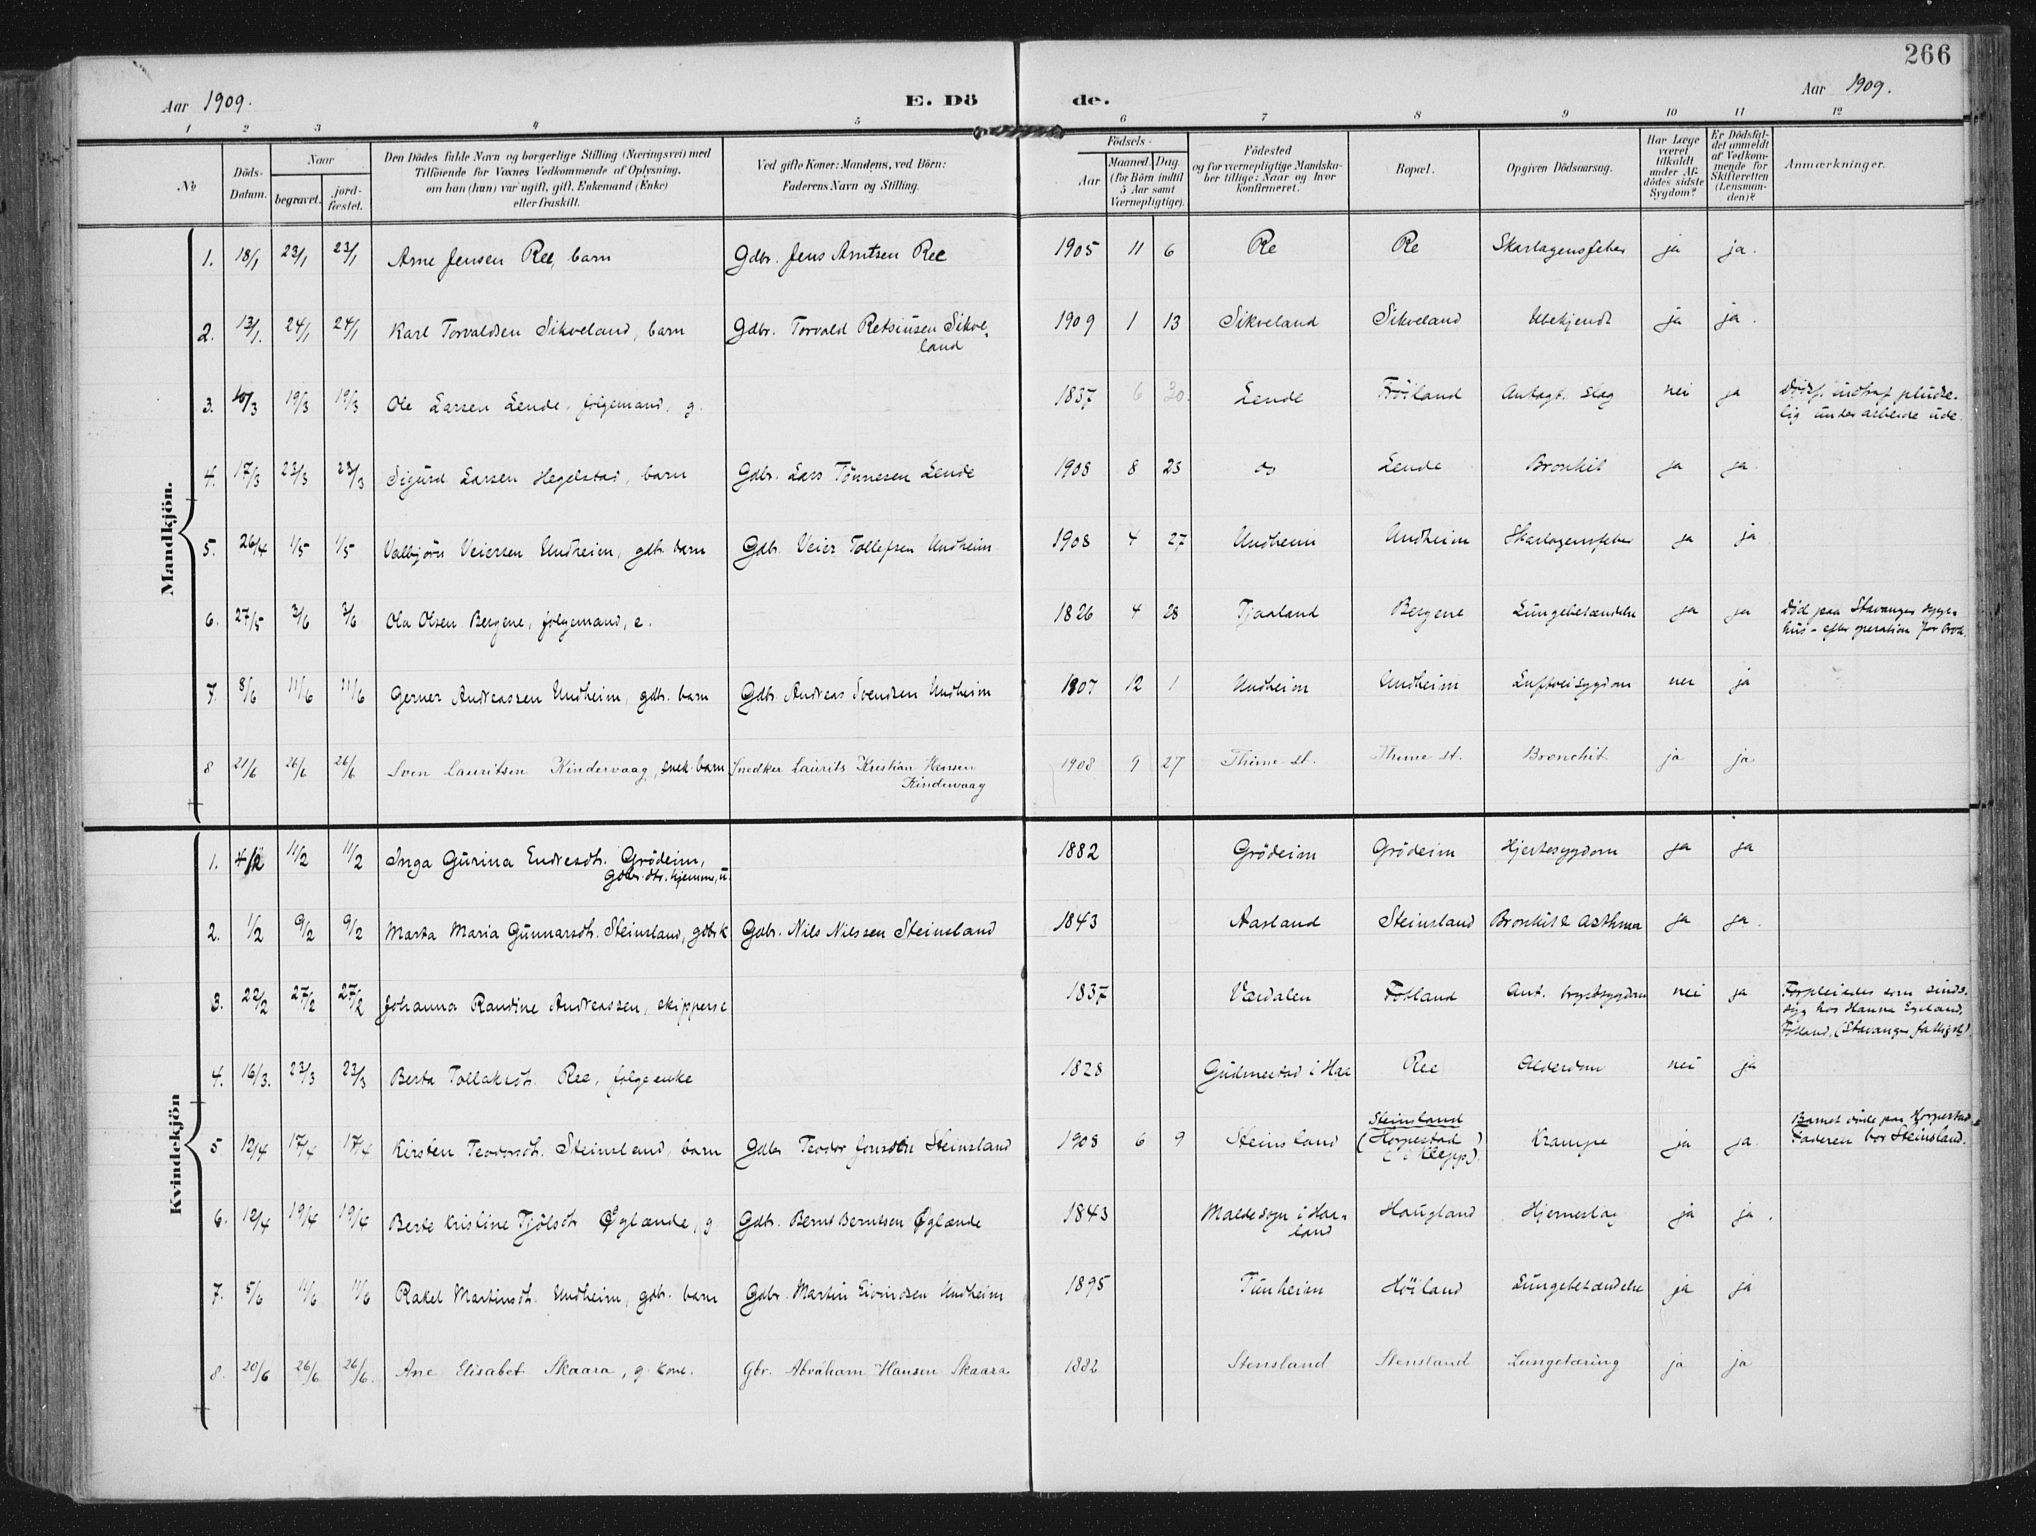 266
Aar 1909.
E. Dö de.
Aar 1909.
1 2 3 4 5 6 7 8 9 10 11 12
No
Döds-Datum.
Naar
begravet.
jord-fæstet.
Den Dödes fulde Navn og borgerlige Stilling (Næringsvei) med
Tilföiende for Voxnes Vedkommende af Oplysning,
om han (hun) var ugift, gift, Enkemand (Enke)
eller fraskilt.
Ved gifte Koner: Mandens, ved Börn:
Faderens Navn og Stilling.
Födsels-
Aar
Maaned. Dag.
(for Börn indtil
5 Aar samt
Værnepligtige).
Födested
og for værnepligtige Mandska-
ber tillige: Naar og hvor
konfirmeret.
Bopæl.
Opgiven Dödsaarsag.
Har Læge
været
tilkaldt
under Af-
dödes sidste
Sygdom?
Er Dödsfal-
det anmeldt
af Vedkom-
mende for
Skifteretten
(Lensman-
den)?
Anmærkninger.
Mandkjön.
1. 18/1 23/1 23/1 Arne Jensen Ree, barn Gdbr. Jens Arntsen Ree 1905 11 6 Re Re Skarlagensfeber ja ja.
2. 13/1. 24/1 24/1 Karl Torvaldsen Sikveland, barn Gdbr. Torvald Retsiusen Sikve-
land 1909 1 13 Sikveland Sikveland Ubekjendt ja ja.
3. 10/3 19/3 19/3 Ole Larsen Lende, følgemand, g. 1837 6 30. Lende Fröiland Antagt. slag nei ja Dödsf. indtraf pludse-
lig under arbeide ude.
4. 17/3 23/3 23/3 Sigurd Larsen Hegelstad, barn Gdbr. Lars Tönnesen Lende 1908 8 23 Lende Bronkit ja ja.
5. 26/4 1/5 1/5 Valbjörn Veiersen Undheim, gdb. barn Gdb. Veier Tollefsen Undheim 1908 4 27 Undheim Undheim Skarlagensfeber ja ja
6. 27/5 3/6 3/6 Ola Olsen Bergene, følgemand, e. 1826 4 28 Tjaaland Bergene Lungebetændelse ja ja Död paa Stavanger syge-
hus - efter operation for brok.
7. 8/6 11/6 11/6 Gerner Andreassen Undheim, gdb. barn Gdb. Andreas Svendsen Undheim 1907 12 1 Undheim Undheim Luftveisygdom nei ja
8 21/6 26/6 26/6 Sven Lauritsen Kindervaag, snek. barn Snedker Laurits Kristian Hansen
Kindervaag 1908 9 27 Thime st. Thime st. Bronchit ja ja
Kvindekjön
1. 4/2 11/2 11/2 Inga Gurina Endresdtr. Grödeim,
gdbr. dtr. hjemme, u. 1882 Grödeim Grödeim Hjertesygdom ja ja
2. 1/2 9/2 9/2 Marta Maria Gunnarsdtr. Steinsland, gdbrk Gdbr. Nils Nilssen Steinsland 1843 Aasland Steinsland Bronkit & Asthma ja ja.
3. 22/2 27/2 27/2 Johanna Randine Andreassen, skipperse 1837 Værdalen Fotland Ant. brystsygdom nei ja Forpleiedes som sinds-
syg hos Hanna Egeland,
(Stavanger fattigv.)
4. 16/3. 23/3 23/3 Berta Tollaksdt. Ree, følgeenke 1828 Gudmestad i Haa Ree Alderdom nei ja
5 12/4 17/4 17/4 Kirsten Teodorsdt. Steinsland, barn Gdb. Teodor Jonssen Steinsland 1908 6 9 Steinsland Steinsland
(Horpestad
i Klepp). Krampe ja ja. Barnet døde paa Horpestad.
Faderen bor Steinsland.
6. 12/4 19/4 19/4 Berte Kristine Tjölsdt. Øglænde, g Gdb. Bernt Berntsen Øglænde 1843 Malde sogn i Haa-
land Haugland Hjerneslag ja ja.
7. 5/6 11/6 11/6 Rakel Martinsdt. Undheim, gdb. barn Gdbr. Martin Eivindsen Undheim 1895 Tunheim Höiland Lungebetændelse ja ja
8. 20/6 26/6 26/6. Ane Elisabet Skaara, g. kone. Gbr. Abraham Hansen Skaara 1882 Stensland Stensland Lungetæring ja ja